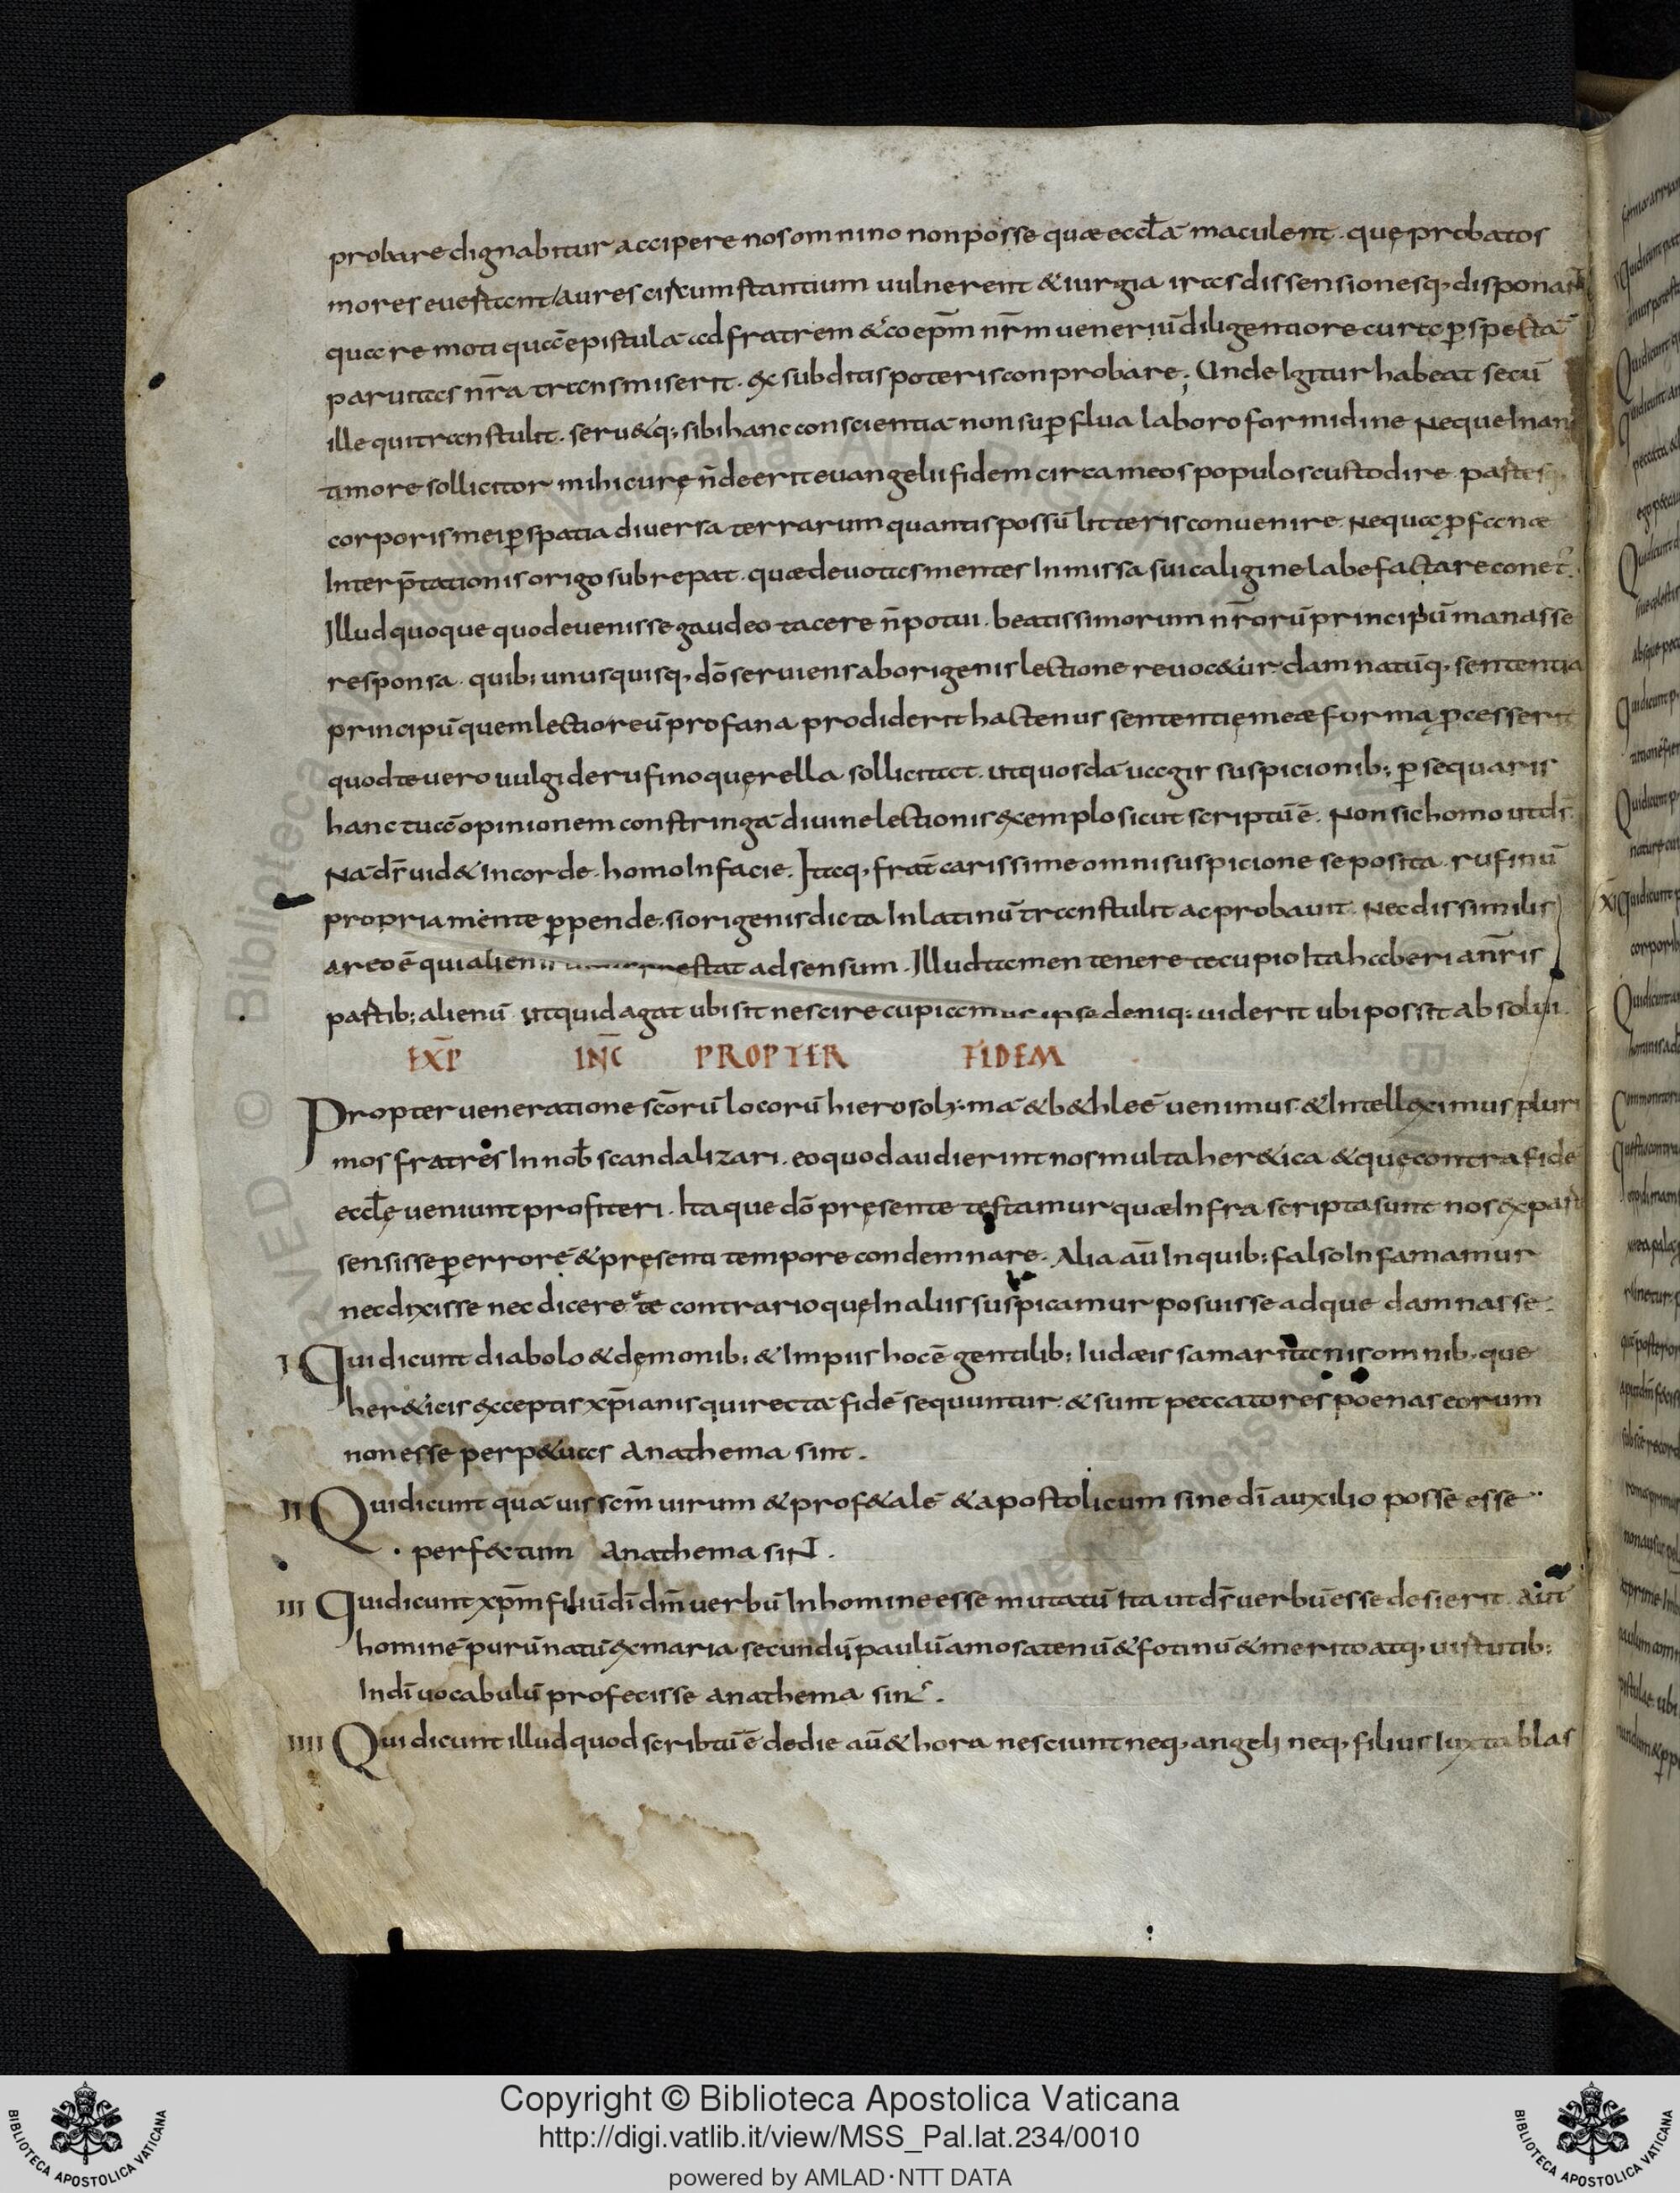 probare dignabitur accipere nos omnino non posse quæ eccłā maculent. quę probatos
mores euertant / aures circumstantium uulnerent & iurgia iras dissensionesq; disponan
qua remoti quāepistulā ad fratrem & coep̄m nr̄m ueneriū diligentiore cura p̱spectā
paruitas nr̄a transmiserit. ex subditis poteris conprobare; Unde Igitur habeat secū
ille qui transtulit. seru&q; sibi hanc conscientiā non sup̱flua laboro formidine Neque Inan
timore sollicitor mihi curę n̄ deerit euangelii fidem circa meos populos custodire. partes
corporis mei p̱ spatia diuersa terrarum quantis possū litteris conuenire. Ne qua p̱fanæ
Interp̄tationis origo subrepat. quæ deuotas mentes Inmissa sui caligine labefactare conet̄.
Illud quoque quod euenisse gaudeo tacere n̄ potui. beatissimorum nr̄orū principū manasse
responsa. quib; unusquisq; dō seruiens ab origenis lectione reuoc&ur. damnatūq; sententia
principū quem lectio reū profana prodiderit hactenus sententię meæ forma p̱cesserit
quod te uero uulgi de rufino querella sollicitat. ut quosdā uagis suspicionib; p̱sequaris
hanc tuā opinionem constringā diuine lectionis exemplo sicut scriptū ē. Non sic homo ut ds̄
Nā ds̄ uid& In corde. homo In facie. Itaq; frat̄ carissime omni suspicione seposita. rufinū
propria mente p̱pende. si origenis dicta In latinū transtulit ac probauit. Nec dissimilis
a reo ē qui alien estat adsensum. Illud tamen tenere te cupio Ita haberi a nr̄is
partib; alienū ut quid agat ubi sit nescire cupiamus ipse deniq; uiderit ubi possit absolui.
EXP̄ INC̄ PROPTER FIDEM
Propter ueneratione sc̄orū locorū hierosolymā & b&hleē uenimus. & Intelleximus pluri
mos fratres In nob̄ scandalizari. eo quod audierint nos multa her&ica & quę contra fidē
eccłę ueniunt profiteri. Itaque dō pręsente testamur quæ Infra scripta sunt nos ex par
sensisse p̱ errorē & pręsenti tempore condemnare. Alia aū In quib; falso Infamamur
nec dixisse nec dicere te contrario quę In aliis suspicamur posuisse adque damnasse.
I Qui dicunt diabolo & demonib; & Impiis hoc ē gentilib; Iudæis samaritanis omnib; que
her&icis exceptis xp̄ianis qui rectā fidē sequuntur. & sunt peccatores poenas eorum
non esse perp&uas anathema sint.
II Qui dicunt quāuis sc̄m uirum & prof&alē & apostolicum sine dī auxilio posse esse
perfectum anathema siNT.
III Qui dicunt xp̄m filiū dī dn̄i uerbū In homine esse mutatū Ita ut ds̄ uerbū esse desierit. aut̄
hominē purū natū ex maria secundū paulū amosatenū & fotinū & merito atq; uirtutib;
In dī uocabulū profecisse anathema sint.
IIII Qui dicunt illud quod scribtū ē de die aū & hora nesciunt neq; angeli neq; filius Iuxta blas
Copyright © Biblioteca Apostolica Vaticana
http://digi.vatlib.it/view/MSS_Pal.lat.234/0010
powered by AMLAD・NTT DATA